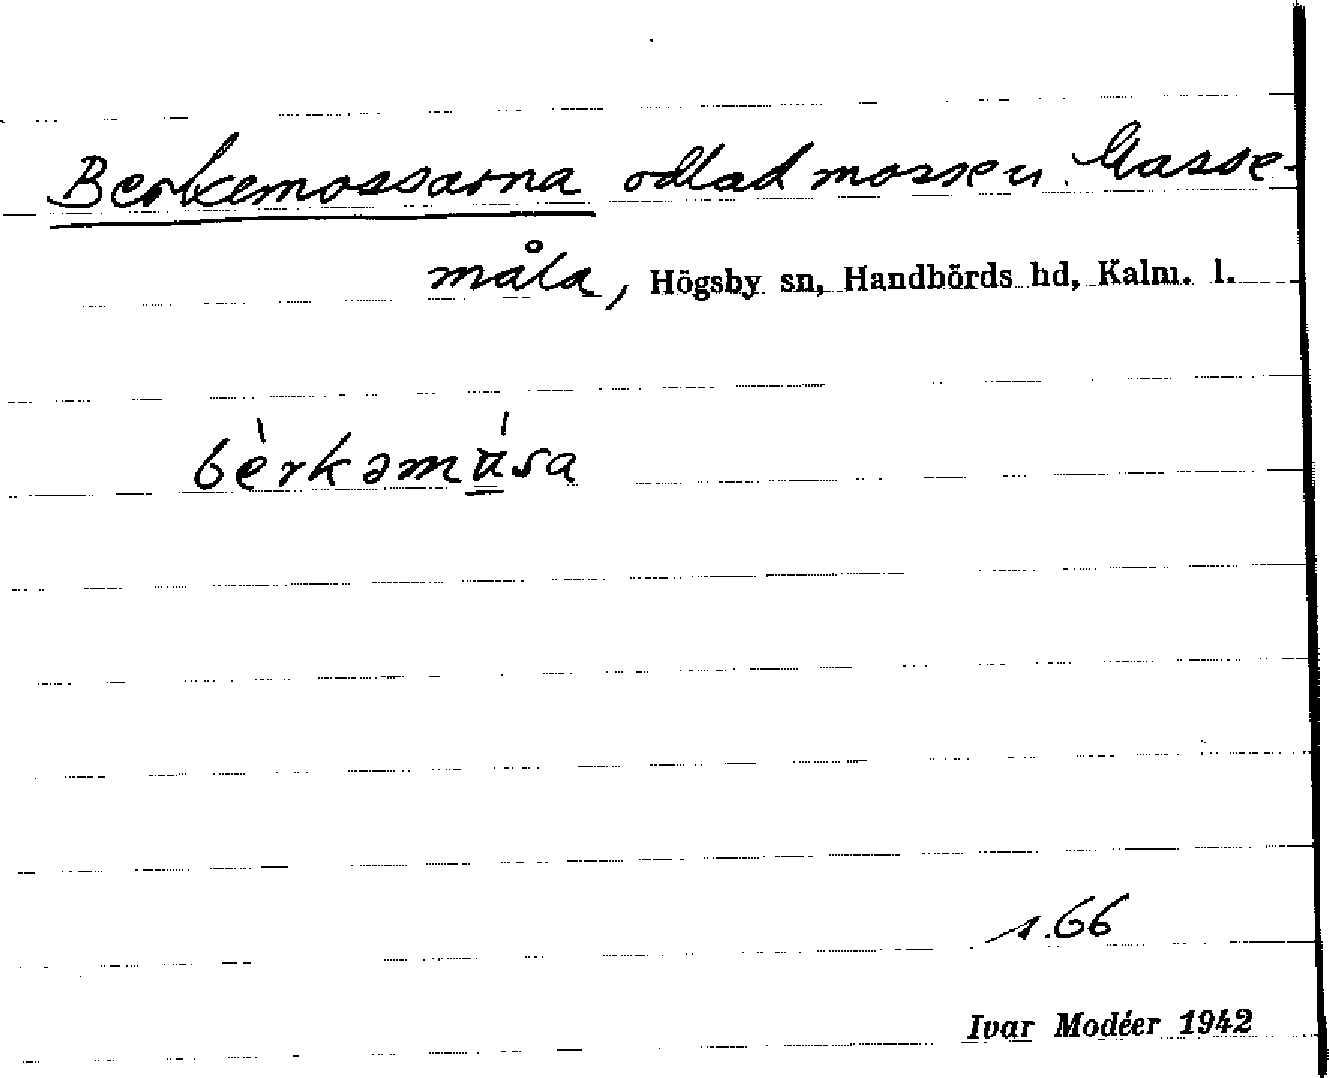 Berkemossarna odlad mossen. Gasse-
måla, Högsby sn, Handbörds hd, Kalm. l.
bèrkəmúsa
s. 66
Ivar Modéer 1942